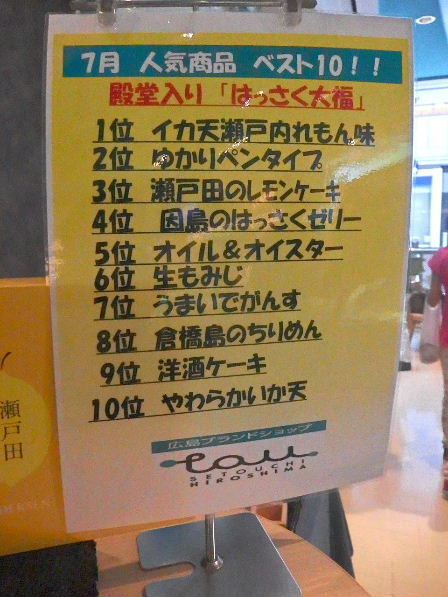 7月 人気商品 ベスト10！！
殿堂入り「はっさく大福」
1位 イカ天瀬戸内れもん味
2位 ゆかりペンタイプ
3位 瀬戸田のレモンケーキ
4位 因島のはっさくゼリー
5位 オイル＆オイスター
6位 生もみじ
7位 うまいでがんす
8位 倉橋島のちりめん
9位 洋酒ケーキ
10位 やわらかいか天
広島ブランドショップ
tau
SETOUCHI
HIROSHIMA
瀬戸田